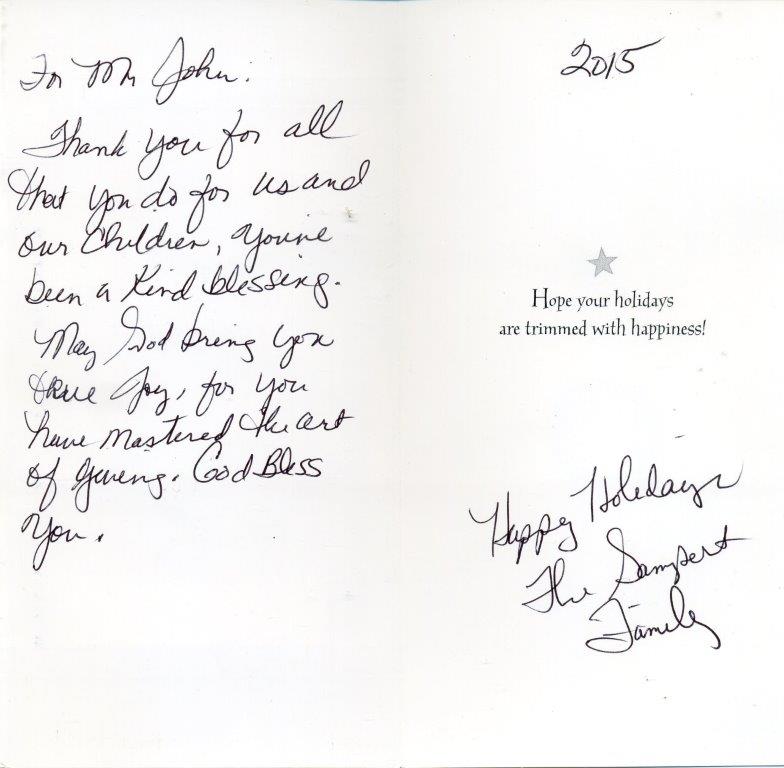 For Mr John.
Thank you for all
that you do for us and
our children, you've
been a Kind blessing.
May God bring you
true Joy, for you
have mastered the art
of giving. God Bless
You.
2015
Hope your holidays
are trimmed with happiness!
Happy Holidays
The
Family